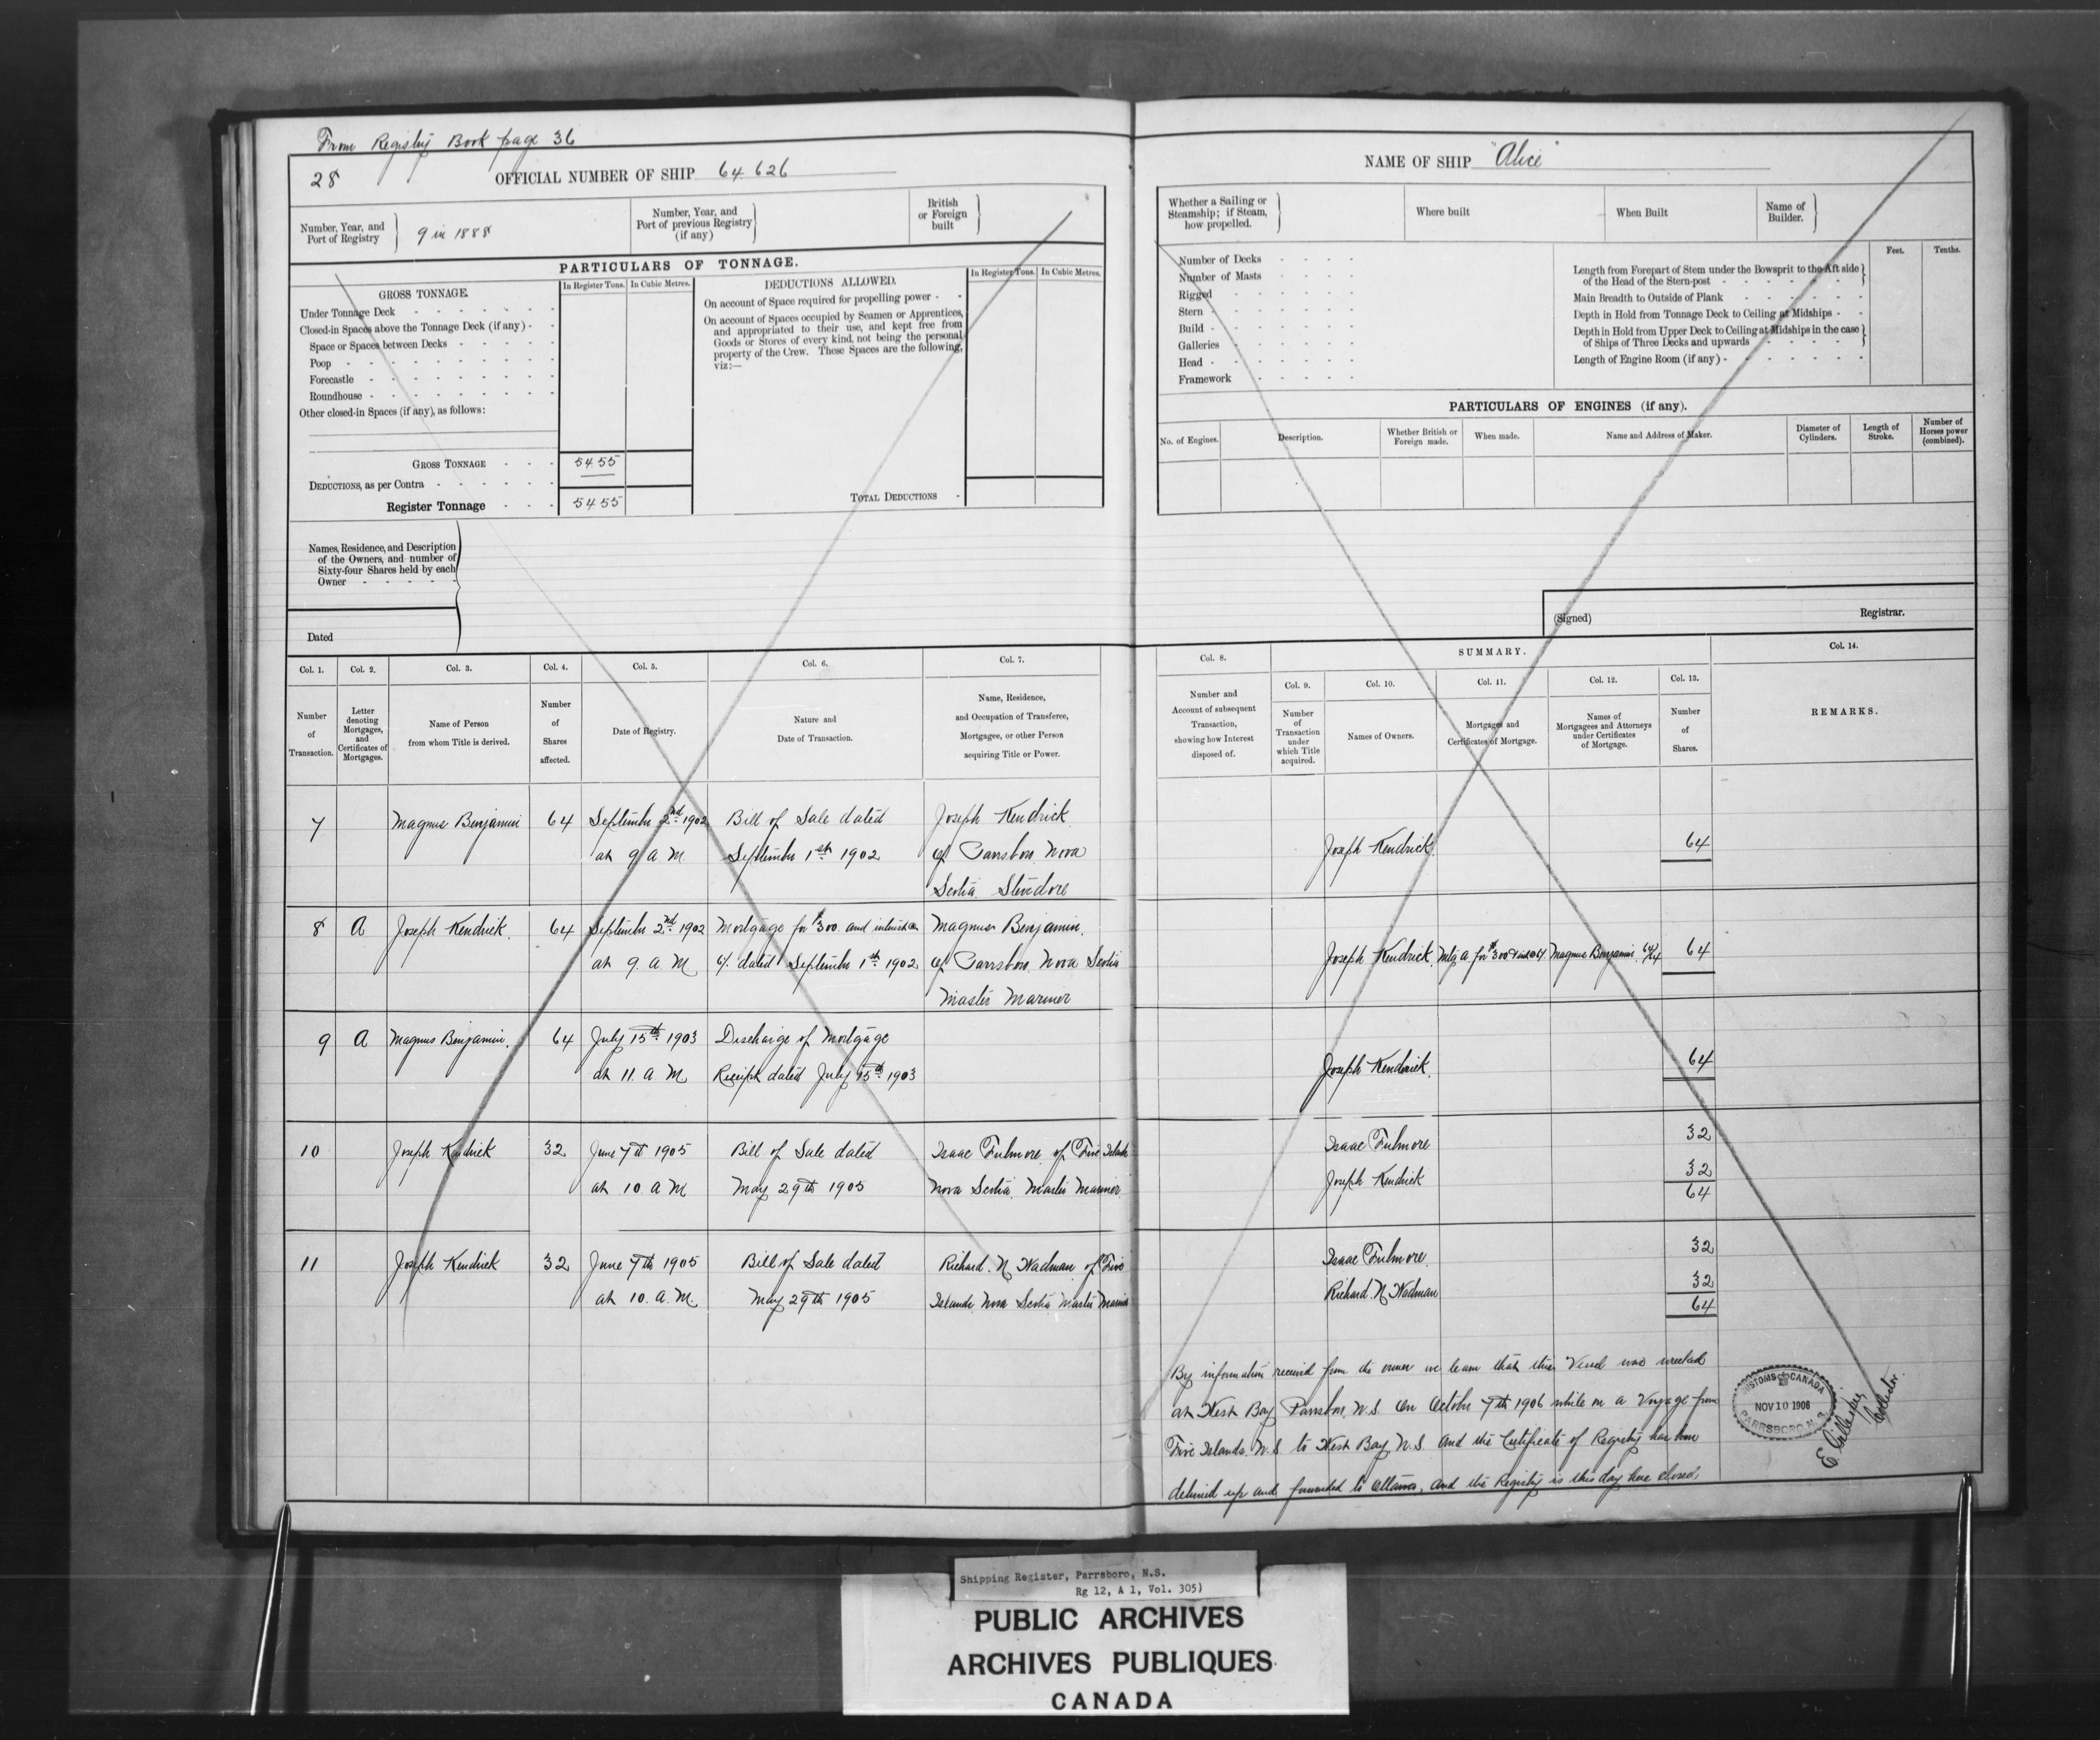 From Registry Book page 36
28
OFFICIAL NUMBER OF SHIP 64.626
Number, Year, and
Port of Registry
9 in 1888
Number, Year, and
Port of previous Registry
(if any)
British
or Foreign
built
PARTICULARS OF TONNAGE.
GROSS TONNAGE.
In Register Tons. In Cubic Metres.
Under Tonnage Deck
Closed-in Spaces above the Tonnage Deck (if any) -
Space or Spaces between Decks
Poop
Forecastle
Roundhouse
Other closed-in Spaces (if any), as follows:
GROSS TONNAGE 54.55
DEDUCTIONS, as per Contra
Register Tonnage 54 55
DEDUCTIONS ALLOWED.
In Register Tons. In Cubic Metres.
On account of Space required for propelling power -
On account of Spaces occupied by Seamen or Apprentices,
and appropriated to their use, and kept free from
Goods or Stores of every kind, not being the personal
property of the Crew. These Spaces are the following,
viz:—
TOTAL DEDUCTIONS
Names, Residence, and Description
of the Owners, and number of
Sixty-four Shares held by each
Owner
Dated
NAME OF SHIP "Alice"
Whether a Sailing or
Steamship; if Steam,
how propelled.
Where built
When Built
Name of
Builder.
Number of Decks
Number of Masts
Rigged
Stern
Build
Galleries
Head
Framework
Feet. Tenths.
Length from Forepart of Stem under the Bowsprit to the Aft side
of the Head of the Stern-post
Main Breadth to Outside of Plank
Depth in Hold from Tonnage Deck to Ceiling at Midships
Depth in Hold from Upper Deck to Ceiling at Midships in the case
of Ships of Three Decks and upwards
Length of Engine Room (if any) -
PARTICULARS OF ENGINES (if any).
No. of Engines.
Description.
Whether British or
Foreign made.
When made.
Name and Address of Maker.
Diameter of
Cylinders.
Length of
Stroke.
Number of
Horses power
(combined).
(Signed) Registrar.
Col. 1. Col. 2. Col. 3. Col. 4. Col. 5. Col. 6. Col. 7.
Number
of
Transaction.
Letter
denoting
Mortgages,
and
Certificates of
Mortgages.
Name of Person
from whom Title is derived.
Number
of
Shares
affected.
Date of Registry.
Nature and
Date of Transaction.
Name, Residence,
and Occupation of Transferee,
Mortgagee, or other Person
acquiring Title or Power.
Col. 8.
Number and
Account of subsequent
Transaction,
showing how Interest
disposed of.
SUMMARY.
Col. 9. Col. 10. Col. 11. Col. 12. Col. 13.
Number
of
Transaction
under
which Title
acquired.
Names of Owners.
Mortgages and
Certificates of Mortgage.
Names of
Mortgagees and Attorneys
under Certificates
of Mortgage.
Number
of
Shares.
Col. 14.
REMARKS.
7 Magnus Benjamin 64 September 2nd 1902 Bill of Sale dated Joseph Kendrick
at 9 A.M. September 1st 1902 of Parrsboro Nova
Scotia Stevedore
Joseph Kendrick 64
8 A Joseph Kendrick. 64 September 2nd 1902 Mortgage for $300. and interest Magnus Benjamin.
at 9. a. M. dated September 1st 1902. of Parrsboro Nova Scotia
Master Mariner
Joseph Kendrick. Mtg A for $300 Magnus Benjamin. 64/64 64
9 A Magnus Benjamin. 64 July 15th 1903 Discharge of Mortgage
at 11. a M Receipt dated July 15th 1903
Joseph Kendrick. 64
10 Joseph Kendrick 32 June 7th 1905 Bill of Sale dated Isaac Fulmore of Five Islands
at 10. a M May 29th 1905 Nova Scotia. Master Mariner
Isaac Fulmore 32
Joseph Kendrick 32
64
11 Joseph Kendrick 32 June 7th 1905 Bill of Sale dated Richard. N Wadman of Five
at 10. a. M. May 29th 1905 Islands. Nova Scotia Master Mariner
Isaac Fulmore. 32
Richard. N Wadman 32
64
By information received from the owner we learn that this Vessel was wrecked
at West Bay Parrsboro, N.S. On October 7th 1906 while on a Voyage from
Five Islands. N.S to West Bay N.S. and the Certificate of Registry has been
delivered up and forwarded to Ottawa. And the Registry is this day here closed.
CUSTOMS CANADA
NOV 10 1906
PARRSBORO, N.S.
E Gillespie
Collector.
Shipping Register, Parrsboro, N.S.
Rg 12, A 1, Vol. 305)
PUBLIC ARCHIVES
ARCHIVES PUBLIQUES
CANADA